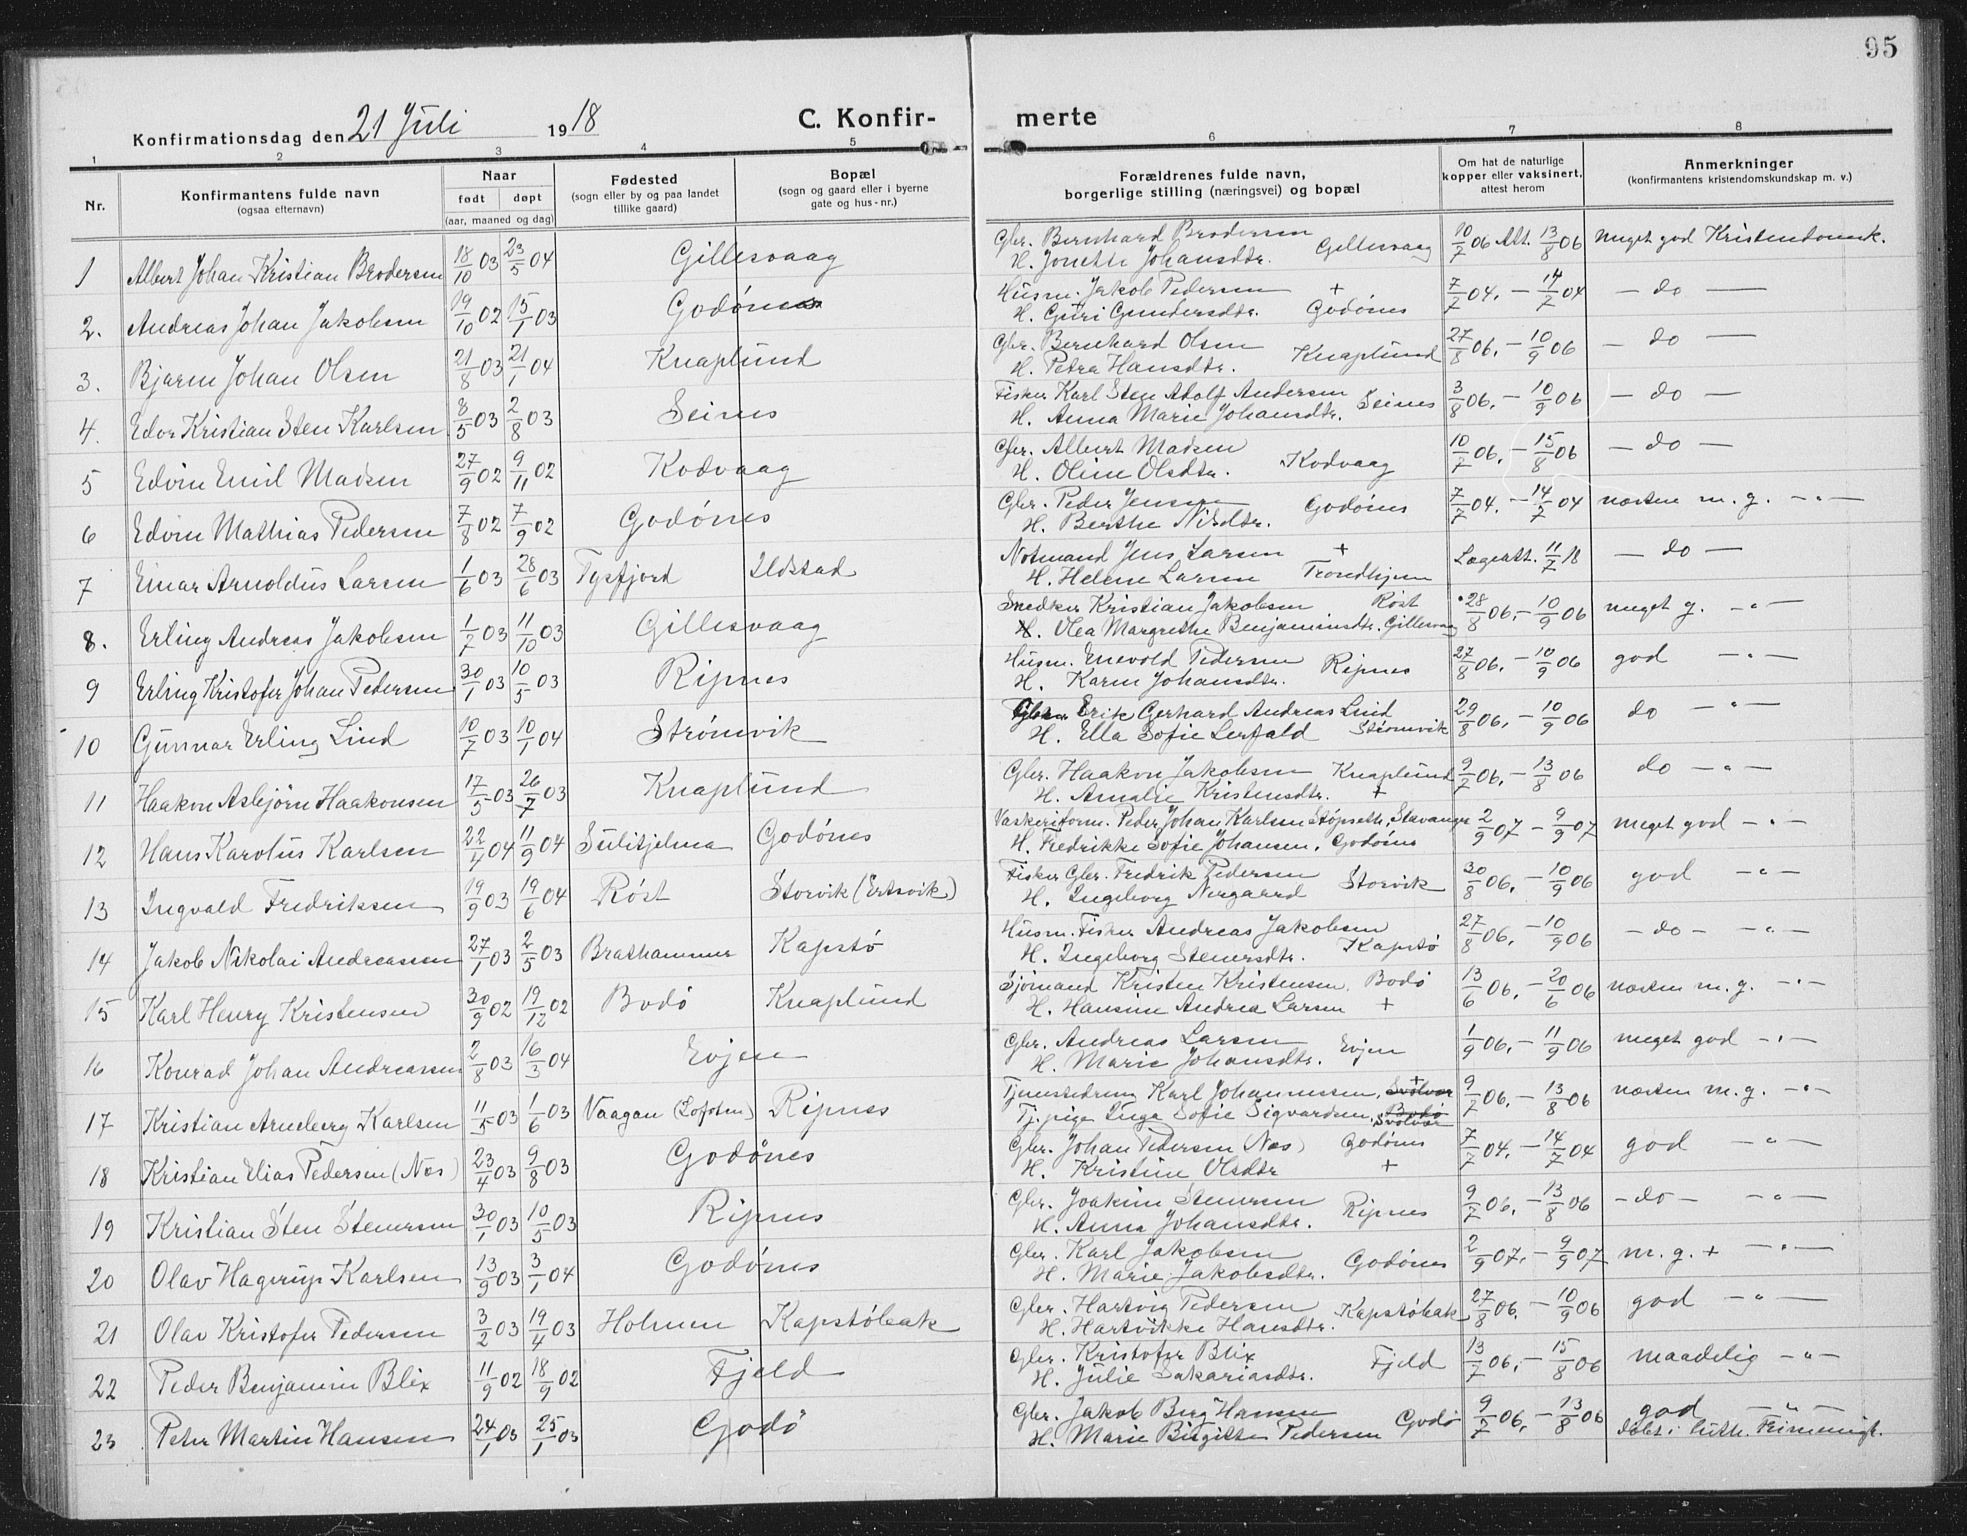 95
Konfirmationsdag den 21 Juli 1918 C. Konfir- merte
1 2 3 4 5 6 7 8
Nr.
Konfirmantens fulde navn
(ogsaa efternavn)
Naar
født døpt
(aar, maaned og dag)
Fødested
(sogn eller by og paa landet
tillike gaard)
Bopæl
(sogn og gaard eller i byerne
gate og hus-nr.)
Forældrenes fulde navn,
borgerlige stilling (næringsvei) og bopæl
Om hat de naturlige
kopper eller vaksinert,
attest herom
Anmerkninger
(konfirmantens kristendomskundskap m. v.)
1 Albert Johan Kristian Brodersen 18/10 03 23/5 04 Gillesvaag Gbr. Bernhard Brodersen
H. Jonette Johansdtr. Gillesvaag 10/7 06 Att. 13/8 06 meget god Kristendomsk.
2. Andreas Johan Jakobsen 19/10 02 15/1 03 Godønes Husm. Jakob Pedersen +
H. Guri Gundersdtr. Godønes 7/7 04. — 14/7 04 — do —
3. Bjarne Johan Olsen 21/8 03 21/1 04 Knaplund Gbr. Bernhard Olsen
H. Petra Hansdtr. Knaplund 27/8 06. — 10/9 06 — do —
4. Edor Kristian Sten Karlsen 8/5 03 2/8 03 Seines Fisker Karl Sten Adolf Andersen
H. Anna Marie Johansdtr. Seines 3/8 06. — 10/9 06 — do —
5 Edvin Emil Madsen 27/9 02 9/11 02 Kodvaag Gbr. Albert Madsen
H. Oline Olsdtr. Kodvaag 10/7 06. — 15/8 06 — do —
6 Edvin Mathias Pedersen 7/8 02 7/9 02 Godønes Gbr. Peder Jensen
H. Berthe Nilsdtr. Godønes 7/7 04. — 14/7 04 næsten m. g. — " —
7 Einar Arnoldus Larsen 1/6 03 28/6 03 Tysfjord Ildstad Notmand Jens Larsen +
H. Helene Larsen Trondhjem Lægeatt. 11/7 18 — do —
8. Erling Andreas Jakobsen 1/7 03 11/10 03 Gillesvaag Snedker Kristian Jakobsen Røst
H. Olea Margrethe Benjaminsdtr. Gillesvaag 28/8 06. — 10/9 06 meget g. — " —
9 Erling Kristofer Johan Pedersen 30/1 03 10/5 03 Ripnes Husm. Enevold Pedersen
H. Karen Johansdtr. Ripnes 27/8 06. — 10/9 06 god — " —
10 Gunnar Erling Lind 10/7 03 10/1 04 Strømvik Erik Gerhard Andreas Lind
H. Ella Sofie Leifald Strømvik 29/8 06. — 10/9 06 do — " —
11 Haakon Asbjørn Haakonsen 17/5 03 26/7 03 Knaplund Gbr. Haakon Jakobsen Knaplund
H. Amalie Kristensdtr. + 9/7 06. — 13/8 06 do — " —
12 Hans Karolus Karlsen 22/4 04 11/9 04 Sulitjelma Godønes Vaskeriform. Peder Johan Karlsen Støpseth, Stavanger
H. Fredrikke Sofie Johansen, Godønes 2/9 07 — 9/9 07 meget god — " —
13 Ingvald Fredriksen 19/9 03 19/6 04 Røst Storvik (Ertsvik) Fisker Gbr. Fredrik Pedersen
H. Ingeborg Nergaard Storvik 30/8 06. — 10/9 06 god — " —
14 Jakob Nikolai Andreassen 27/1 03 2/5 03 Brathammer Kapstø Husm. Fisker Andreas Jakobsen
H. Ingeborg Stenersdtr. Kapstø 27/8 06. — 10/9 06 — do — — " —
15 Karl Henry Kristensen 30/9 02 19/12 02 Bodø Knaplund Sjømand Kristen Kristensen, Bodø
H. Hansine Andrea Larsen + 13/6 06. — 20/6 06 næsten m. g. — " —
16 Konrad Johan Andreassen 2/8 03 16/3 04 Evjen Gbr. Andreas Larsen
H. Marie Johansdtr. Evjen 1/9 06. — 11/9 06 meget god — " —
17 Kristian Arneberg Karlsen 11/5 03 1/6 03 Vaagan (Lofoten) Ripnes Tjenestedreng Karl Johannessen, Svolvær +
Tj.pige Inga Sofie Sigvardsen, Bodø Svolvær 9/7 06. — 13/8 06 næsten m. g. — " —
18 Kristian Elias Pedersen (Næs) 23/4 03 9/8 03 Godønes Gbr. Johan Pedersen (Næs) Godønes
H. Kristine Olsdtr + 7/7 04. — 14/7 04 god — " —
19 Kristian Sten Stenersen 30/1 03 10/5 03 Ripnes Gbr. Joakim Stenersen
H. Anna Johansdtr. Ripnes 9/7 06. — 13/8 06 — do — — " —
20 Olav Hagerup Karlsen 13/9 03 3/1 04 Godønes Gbr. Karl Jakobsen
H. Marie Jakobsdtr. Godønes 2/9 07. — 9/9 07 m. g. + — " —
21 Olav Kristofer Pedersen 3/2 03 19/4 03 Holmen Kapstøbak Gbr. Hartvig Pedersen
H. Hartvikke Hansdtr. Kapstøbak 27/8 06. — 10/9 06 god — " —
22 Peder Benjamin Blix 11/9 02 18/9 02 Fjeld Gbr. Kristofer Blix
H. Julie Sakariasdtr. Fjeld 13/7 06. — 15/8 06 maadelig — " —
23 Peter Martin Hansen 24/1 03 25/1 03 Godø Gbr. Jakob Berg Hansen
H. Marie Birgitte Pedersen Godø 9/7 06. — 13/8 06 god — " —
døbt i luth. Frimenigh.